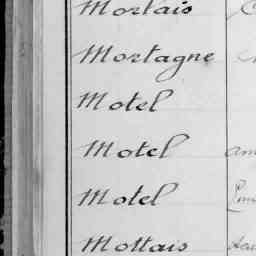 Mortais
Mortagne
Motel
Motel am
Motel
Mottais